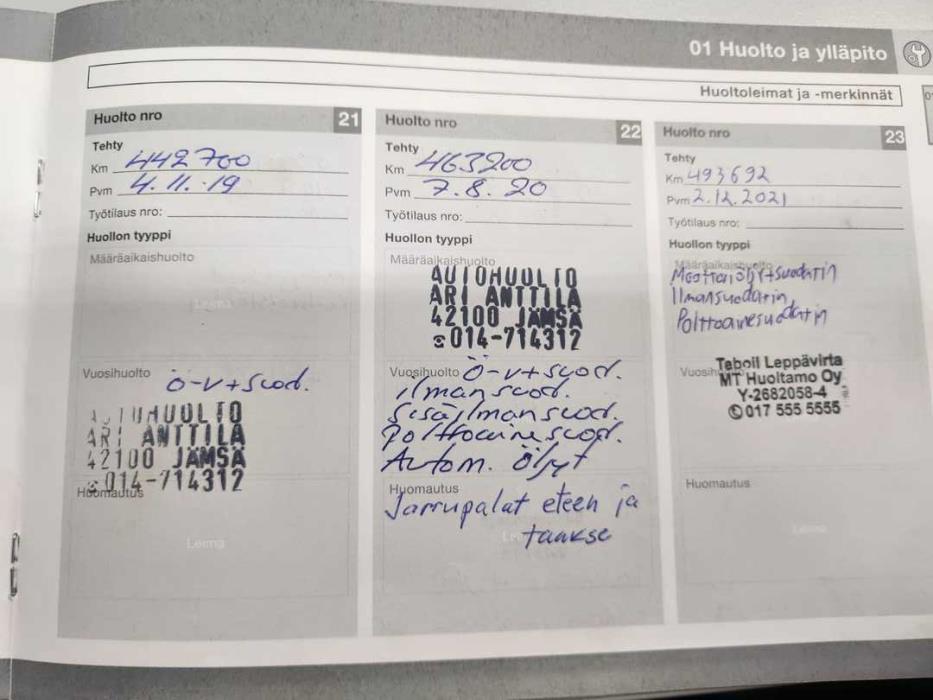 01 Huolto ja ylläpito
Huoltoleimat ja -merkinnät
Huolto nro 21
Tehty
Km 442700
Pvm 4.11.19
Työtilaus nro:
Huollon tyyppi
Määräaikaishuolto
Leima
Vuosihuolto Ö-v+suod.
AUTOHUOLTO
ARI ANTTILA
42100 JÄMSÄ
☎014-714312
Huomautus
Leima
Huolto nro 22
Tehty
Km 463200
Pvm 7.8.20
Työtilaus nro:
Huollon tyyppi
Määräaikaishuolto
AUTOHUOLTO
ARI ANTTILA
42100 JÄMSÄ
☎014-714312
Vuosihuolto Ö-v+suod.
ilmansuod.
Sisäilmansuod.
Polttoainesuod.
Autom. öljyt
Huomautus
Jarrupalat eteen ja
taakse
Huolto nro 23
Tehty
Km 493692
Pvm 2.12.2021
Työtilaus nro:
Huollon tyyppi
Määräaikaishuolto
Moottoriöljyt+suodatin
Ilmansuodatin
Polttoainesuodatin
Teboil Leppävirta
MT Huoltamo Oy
Y-2682058-4
✆017 555 5555
Huomautus
Leima